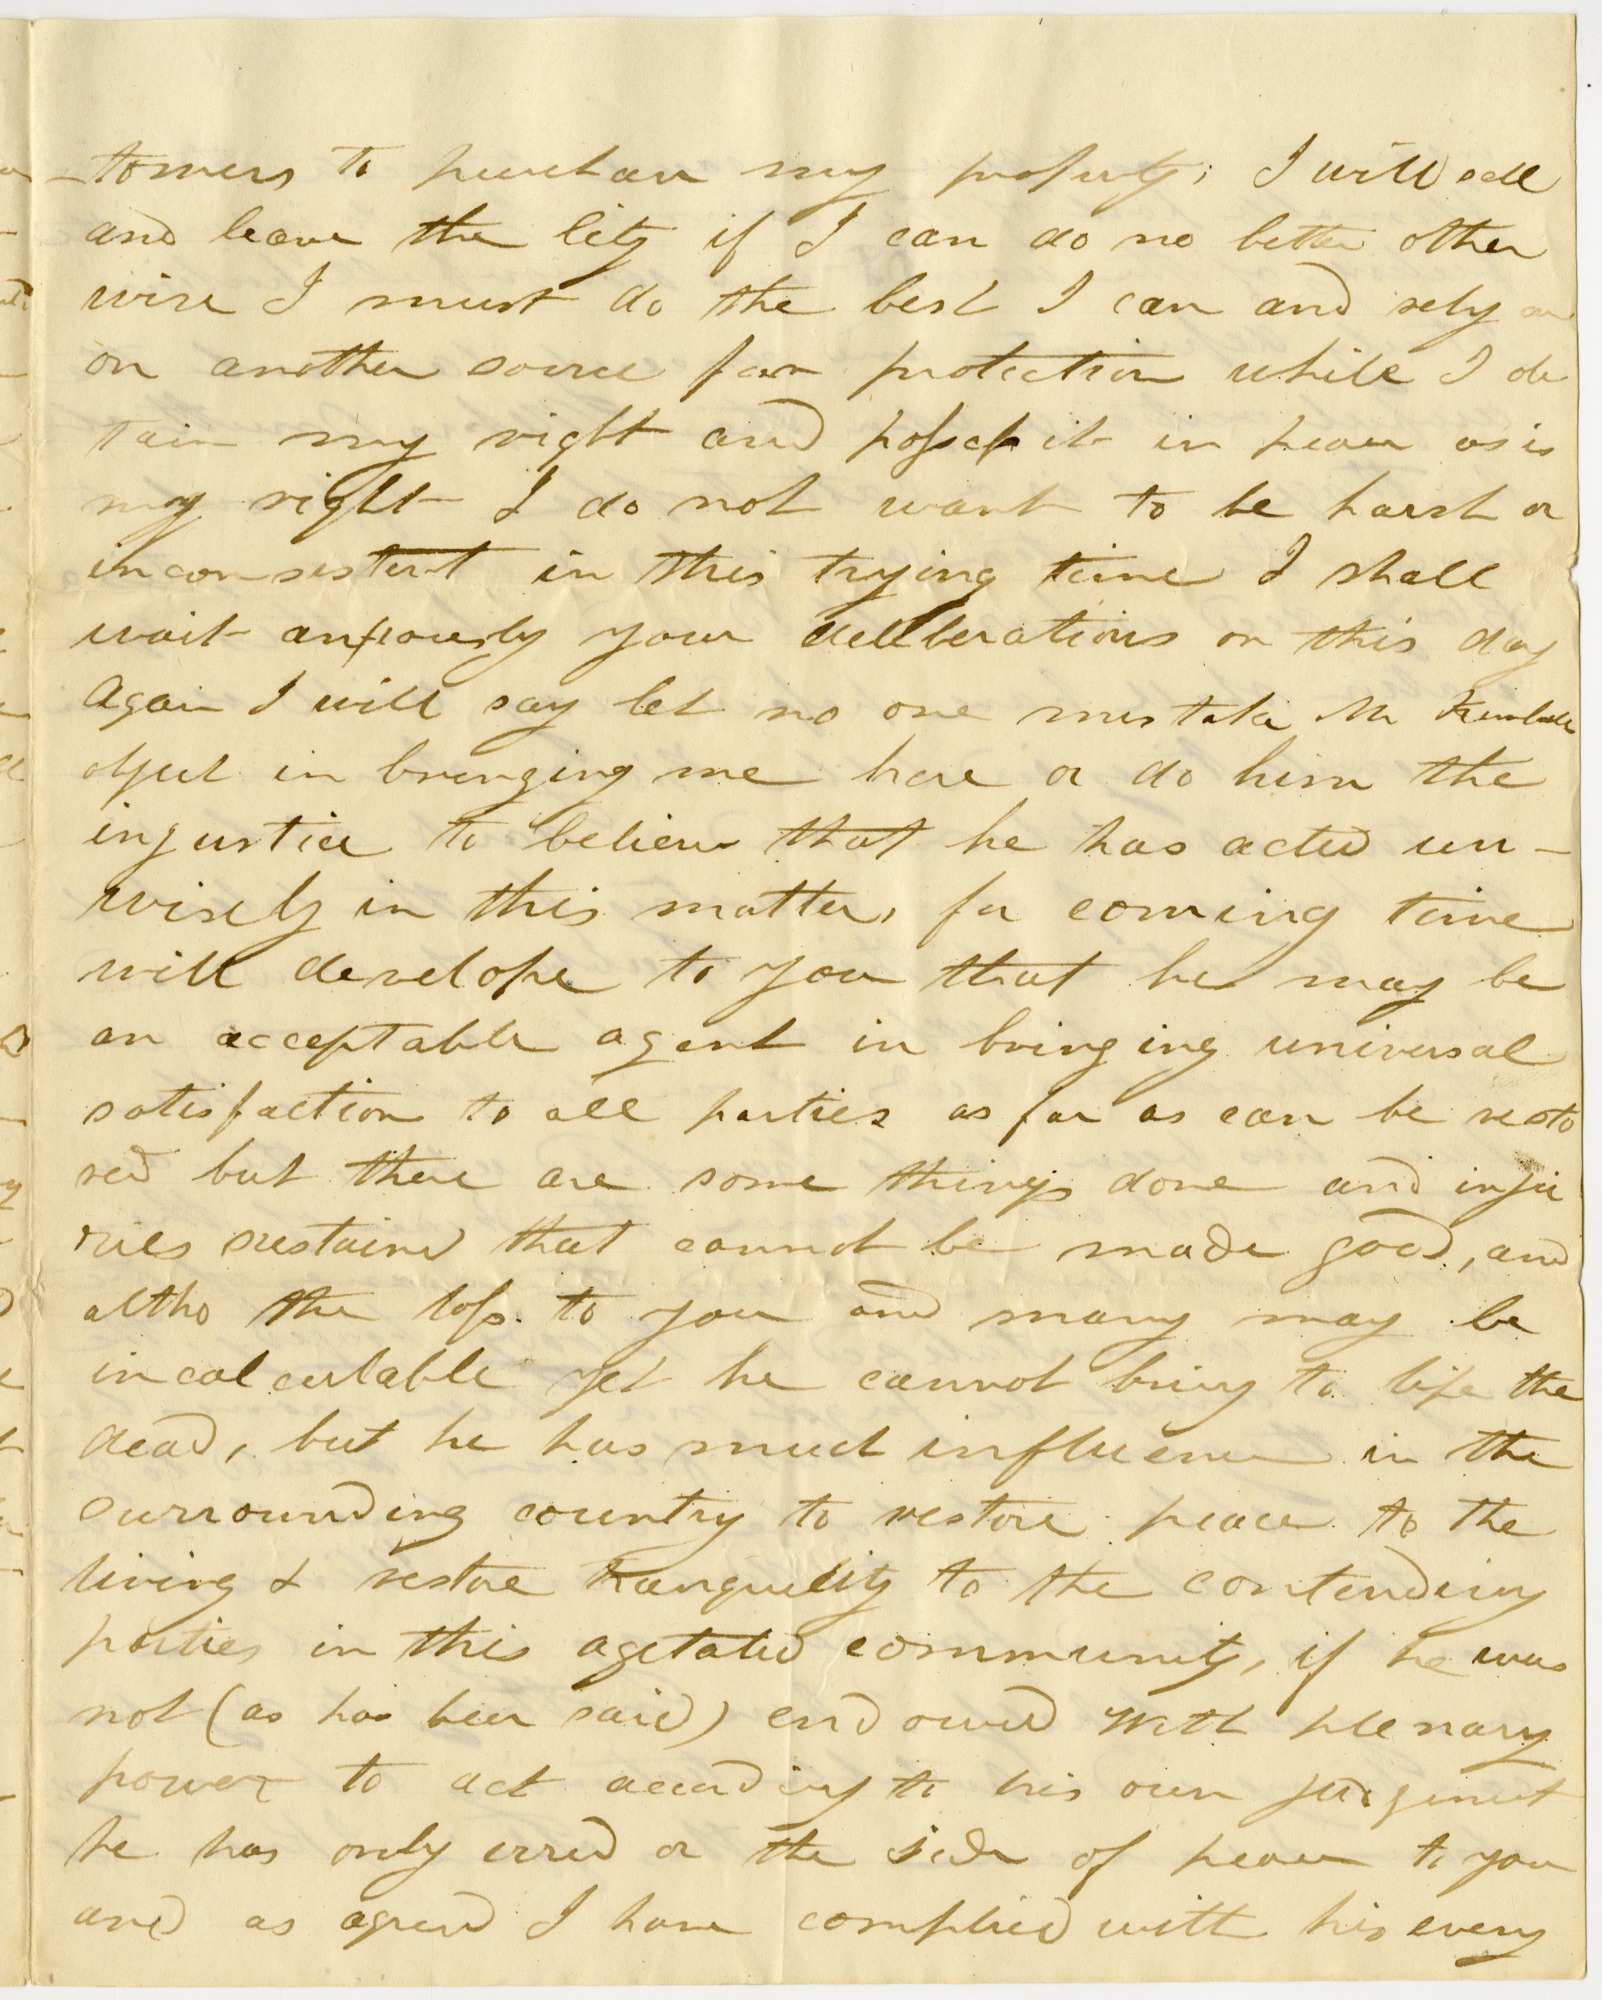 -tomers to purchase my property; I will sell
and leave the City if I can do no better other
wise I must do the best I can and rely
on another source for protection while I de
tain my right and possess it in peace as is
my right I do not want to be harsh or
inconsistent in this trying time I shall
wait anxiously your deliberations on this day
Again I will say let no one mistake Mr
object in bringing me here or do him the
injustice to believe that he has acted un-
wisely in this matter, for coming time
will develope to you that he may be
an acceptable agent in bringing universal
satisfaction to all parties as far as can be resto
red but there are some things done and inju
ries sustained that cannot be made good, and
altho the loss to you and many may be
incalculable yet he cannot bring to life the
dead, but he has much influence in the
surrounding country to restore peace to the
living & restore tranquility to the contending
parties in this agetated community, if he was
not (as has been said) endowed with plenary
power to act according to his own judgment
he has only erred on the side of peace to you
and as agreed I have complied with his every